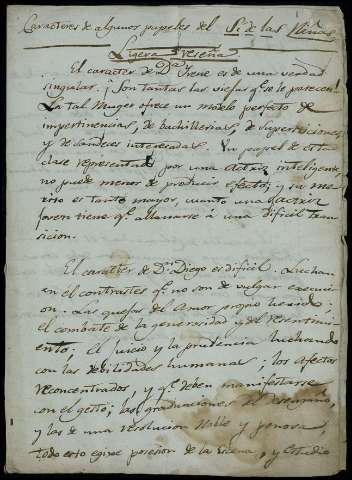 Caracteres de algunos papeles del Si de las Niñas
Ligera reseña
El caracter de Dª Irene es de una verdad
singular. ¡Son tantas las viejas qe se le parecen!
La tal Muger ofrece un modelo perfecto de
impertinencias, de bachillerias, de supersticiones,
y de sandeces interesadas. Un papel de esta
clase representado por una Actriz inteligente,
no puede menos de producir efecto; y su me-
rito es tanto mayor, cuanto una Actriz
joven tiene qe allanarse á una dificil tran-
sicion.
El caracter de Dn Diego es dificil. Luchan
en él contrastes qe no son de vulgar execu-
cion. Las quejas del Amor propio herido;
el combate de la generosidad y del resentimi-
ento; el juicio y la prudencia luchando
con las debilidades humanas; los afectos
reconcentrados, y qe deben manifestarse
con el gesto; las graduaciones del desengaño,
y las de una resolucion noble y penosa,
todo esto egixe posesion de la Escena, y estudio